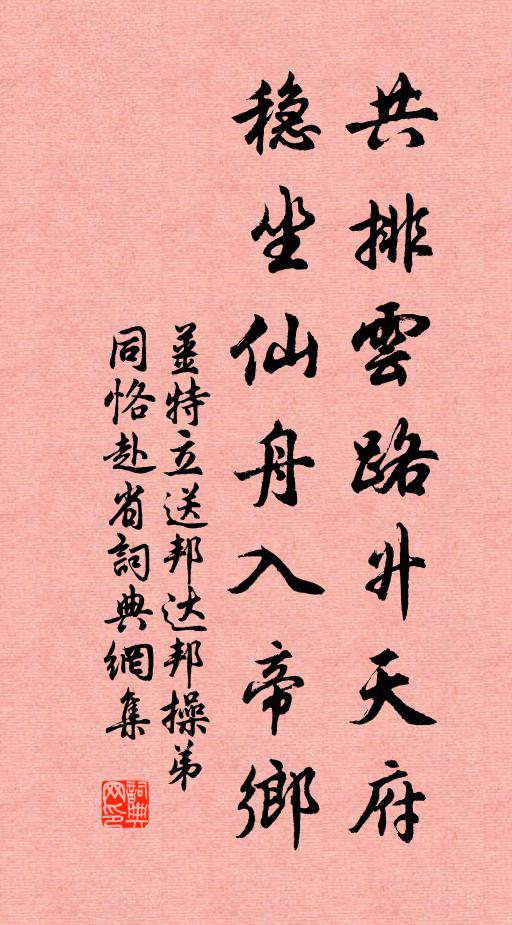 共排雲路升天府
穏坐仙舟入帝鄉
姜特立送邦达邦操弟
同恪赴省詞典網集
詞典网印